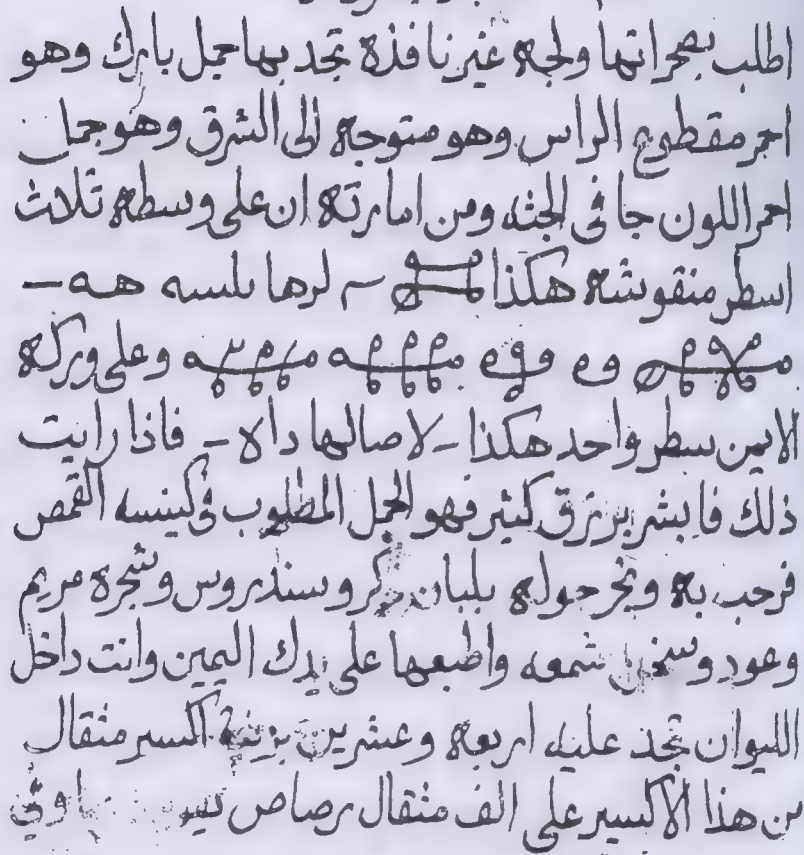 اطلب بصحراتها ولجه غير نافذة تجد بها جمل بارك وهو
احمر مقطوع الراس وهو متوجه الى الشرق وهو جمل
احمر اللون جا فى الجثه ومن امارته ان على وسطه ثلاث
اسطر منقوشه هكذا
وعلى وركه
الايمن سطر واحد هكذا فاذا رايت
ذلك فابشر برزق كثير فهو الجمل المطلوب فى كنيسه القمص
فرحب به وبخر حوله بلبان ذكر وسندروس وشجرة مريم
وعود شمعه واطبعها على يدك اليمين وانت داخل
الليوان تجد عليه اربعه وعشرين اكسير مثقال
من هذا الاكسير على الف مثقال رصاص